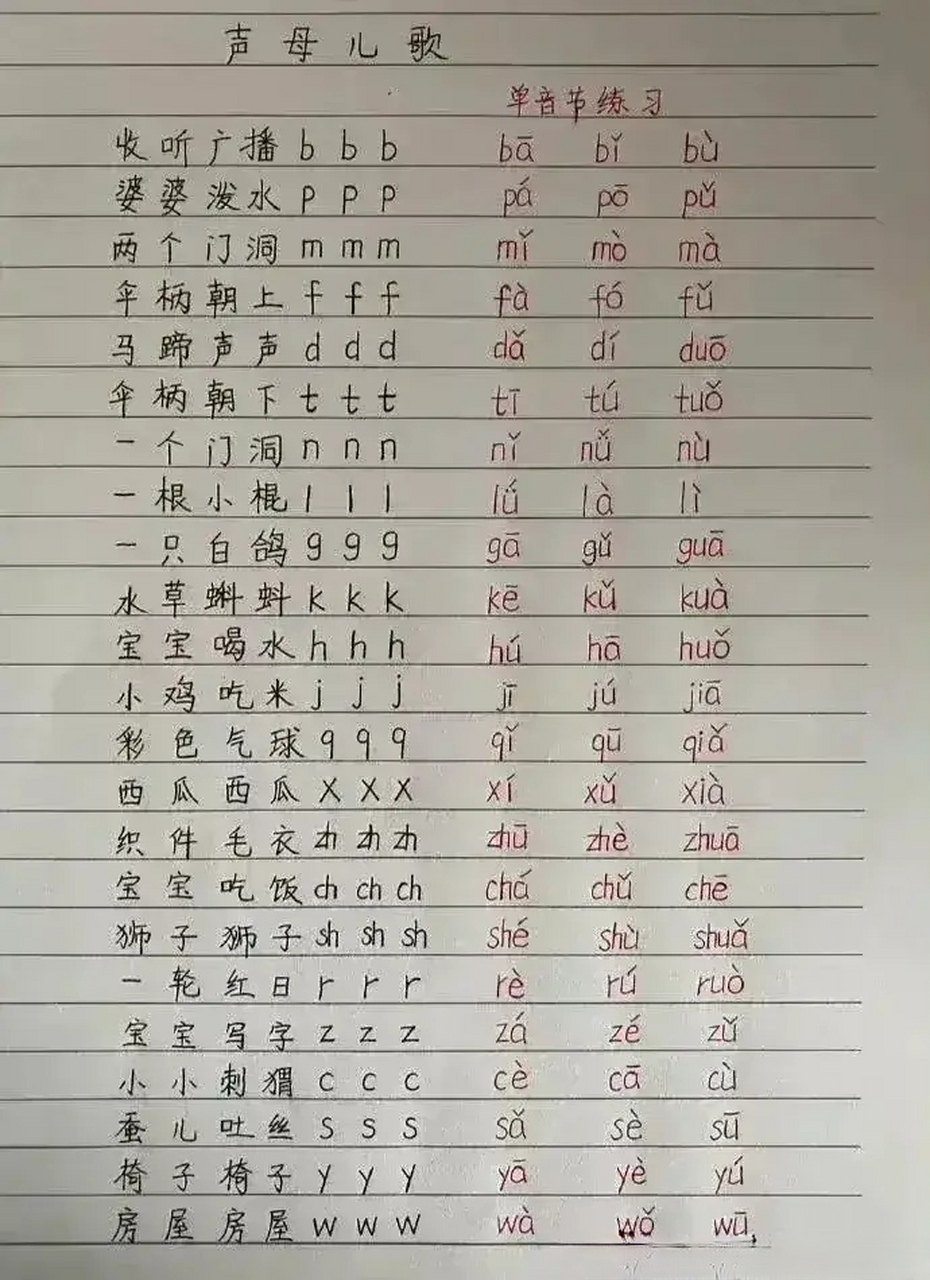 声母儿歌
单音节练习
收听广播 b b b bā bǐ bù
婆婆泼水 p p p pá pō pǔ
两个门洞 m m m mǐ mò mà
伞柄朝上 f f f fà fó fǔ
马蹄声声 d d d dǎ dí duō
伞柄朝下 t t t tī tú tuǒ
一个门洞 n n n nǐ nǚ nù
一根小棍 l l l lǘ là lì
一只白鸽 g g g gā gǔ guā
水草蝌蚪 k k k kē kǔ kuà
宝宝喝水 h h h hú hā huǒ
小鸡吃米 j j j jī jú jiā
彩色气球 q q q qǐ qū qiǎ
西瓜西瓜 x x x xí xǔ xià
织件毛衣 zh zh zh zhū zhè zhuā
宝宝吃饭 ch ch ch chá chǔ chē
狮子狮子 sh sh sh shé shù shuǎ
一轮红日 r r r rè rú ruò
宝宝写字 z z z zá zé zǔ
小小刺猬 c c c cè cā cù
蚕儿吐丝 s s s sǎ sè sū
椅子椅子 y y y yā yè yú
房屋房屋 w w w wà wǒ wū,